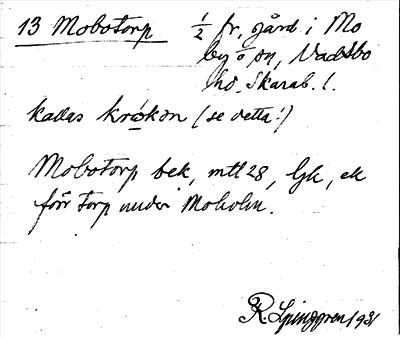 13 Mobotorp ½ fr. gård i Mo
by o sn, Vadsbo
hd. Skarab. l.
kallas krókən (se detta!)
Mobotorp bek, mtl 28, Gk, ek
förr torp under Moholm.
R. Ljunggren 1931